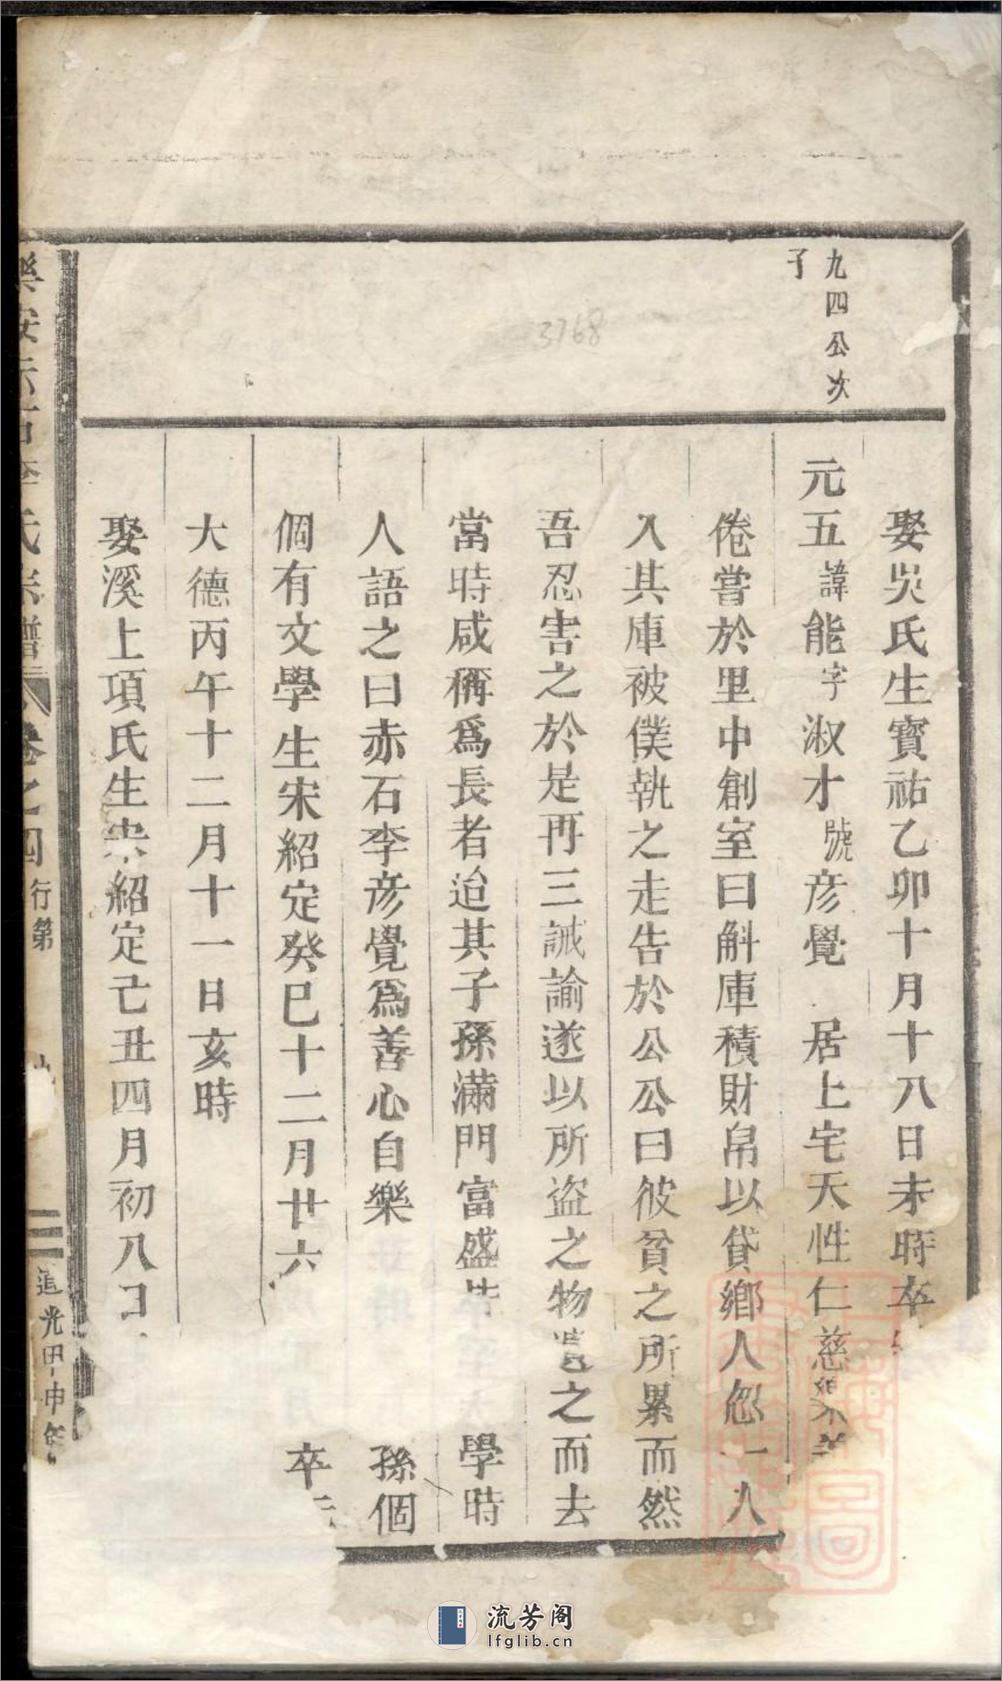 九四公次
子
娶吳氏生寶祐乙卯十月十八日未時卒
元五諱能字淑才號彥覺 居上宅天性仁慈樂善
倦嘗於里中創室曰斛庫積財帛以貸鄉人忽一人
入其庫被僕執之走告於公公曰彼貧之所累而然
吾忍害之於是再三誡諭遂以所盜之物遺之而去
當時咸稱為長者迨其子孫滿門富盛 學時
人語之曰赤石李彥覺為善心自樂 孫個
個有文學生宋紹定癸巳十二月廿六 卒
大德丙午十二月十一日亥時
娶溪上項氏生宋紹定己丑四月初八日
樂安赤石李氏宗譜 卷之四 行第 二 道光甲申年
3768
流芳阁
lfglib.cn